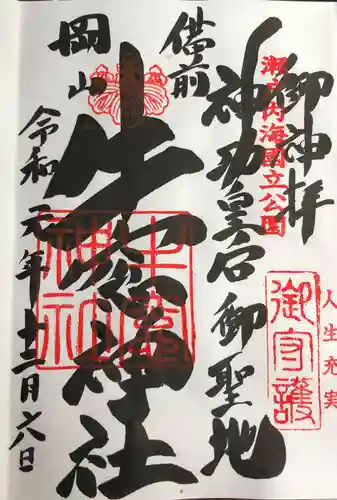 御神拝
瀬戸内海國立公園
御守護
人生充実
備前
神功皇后御聖地
岡山
牛窓神社
牛窓神社
令和元年十二月六日